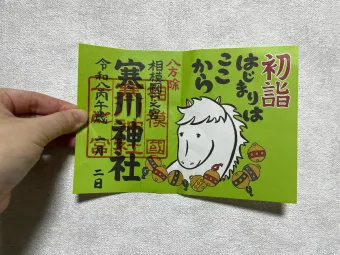 初詣
はじまりは
ここ
から
八方除
相模國一之宮
寒川神社
令和八丙午歳
二日